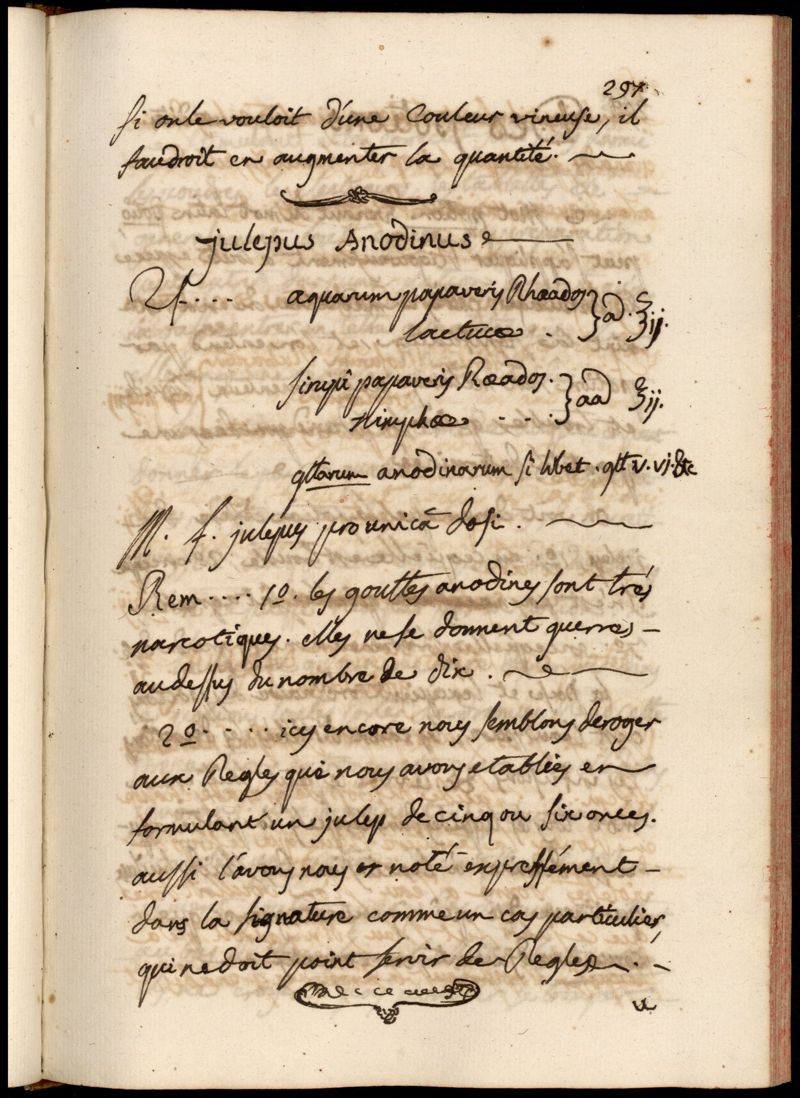 297
si on le vouloit d'une couleur vineuse, il
faudroit en augmenter la quantité.
julepus Anodinus
♃.... aquarum papaveris Rhœados
lactucæ . } aā. ℥ij.
sirupi papaveris Rœados.
nimphæ . . . . } aā ℥ij.
gttarum anodinarum si libet. gtt v. vj. &c
M. f. julepus pro unicā dosi.
Rem.... 1o. les gouttes anodines sont tres
narcotiques. elles ne se donnent guerres
au dessus du nombre de dix.
2o..... icy encore nous semblons deroger
aux Regles que nous avons etablies en
formulant un julep de cinq ou six onces.
aussi l'avons nous er noté expressément
dans la signature comme un cas particulier,
qui ne doit point servir de Regle.